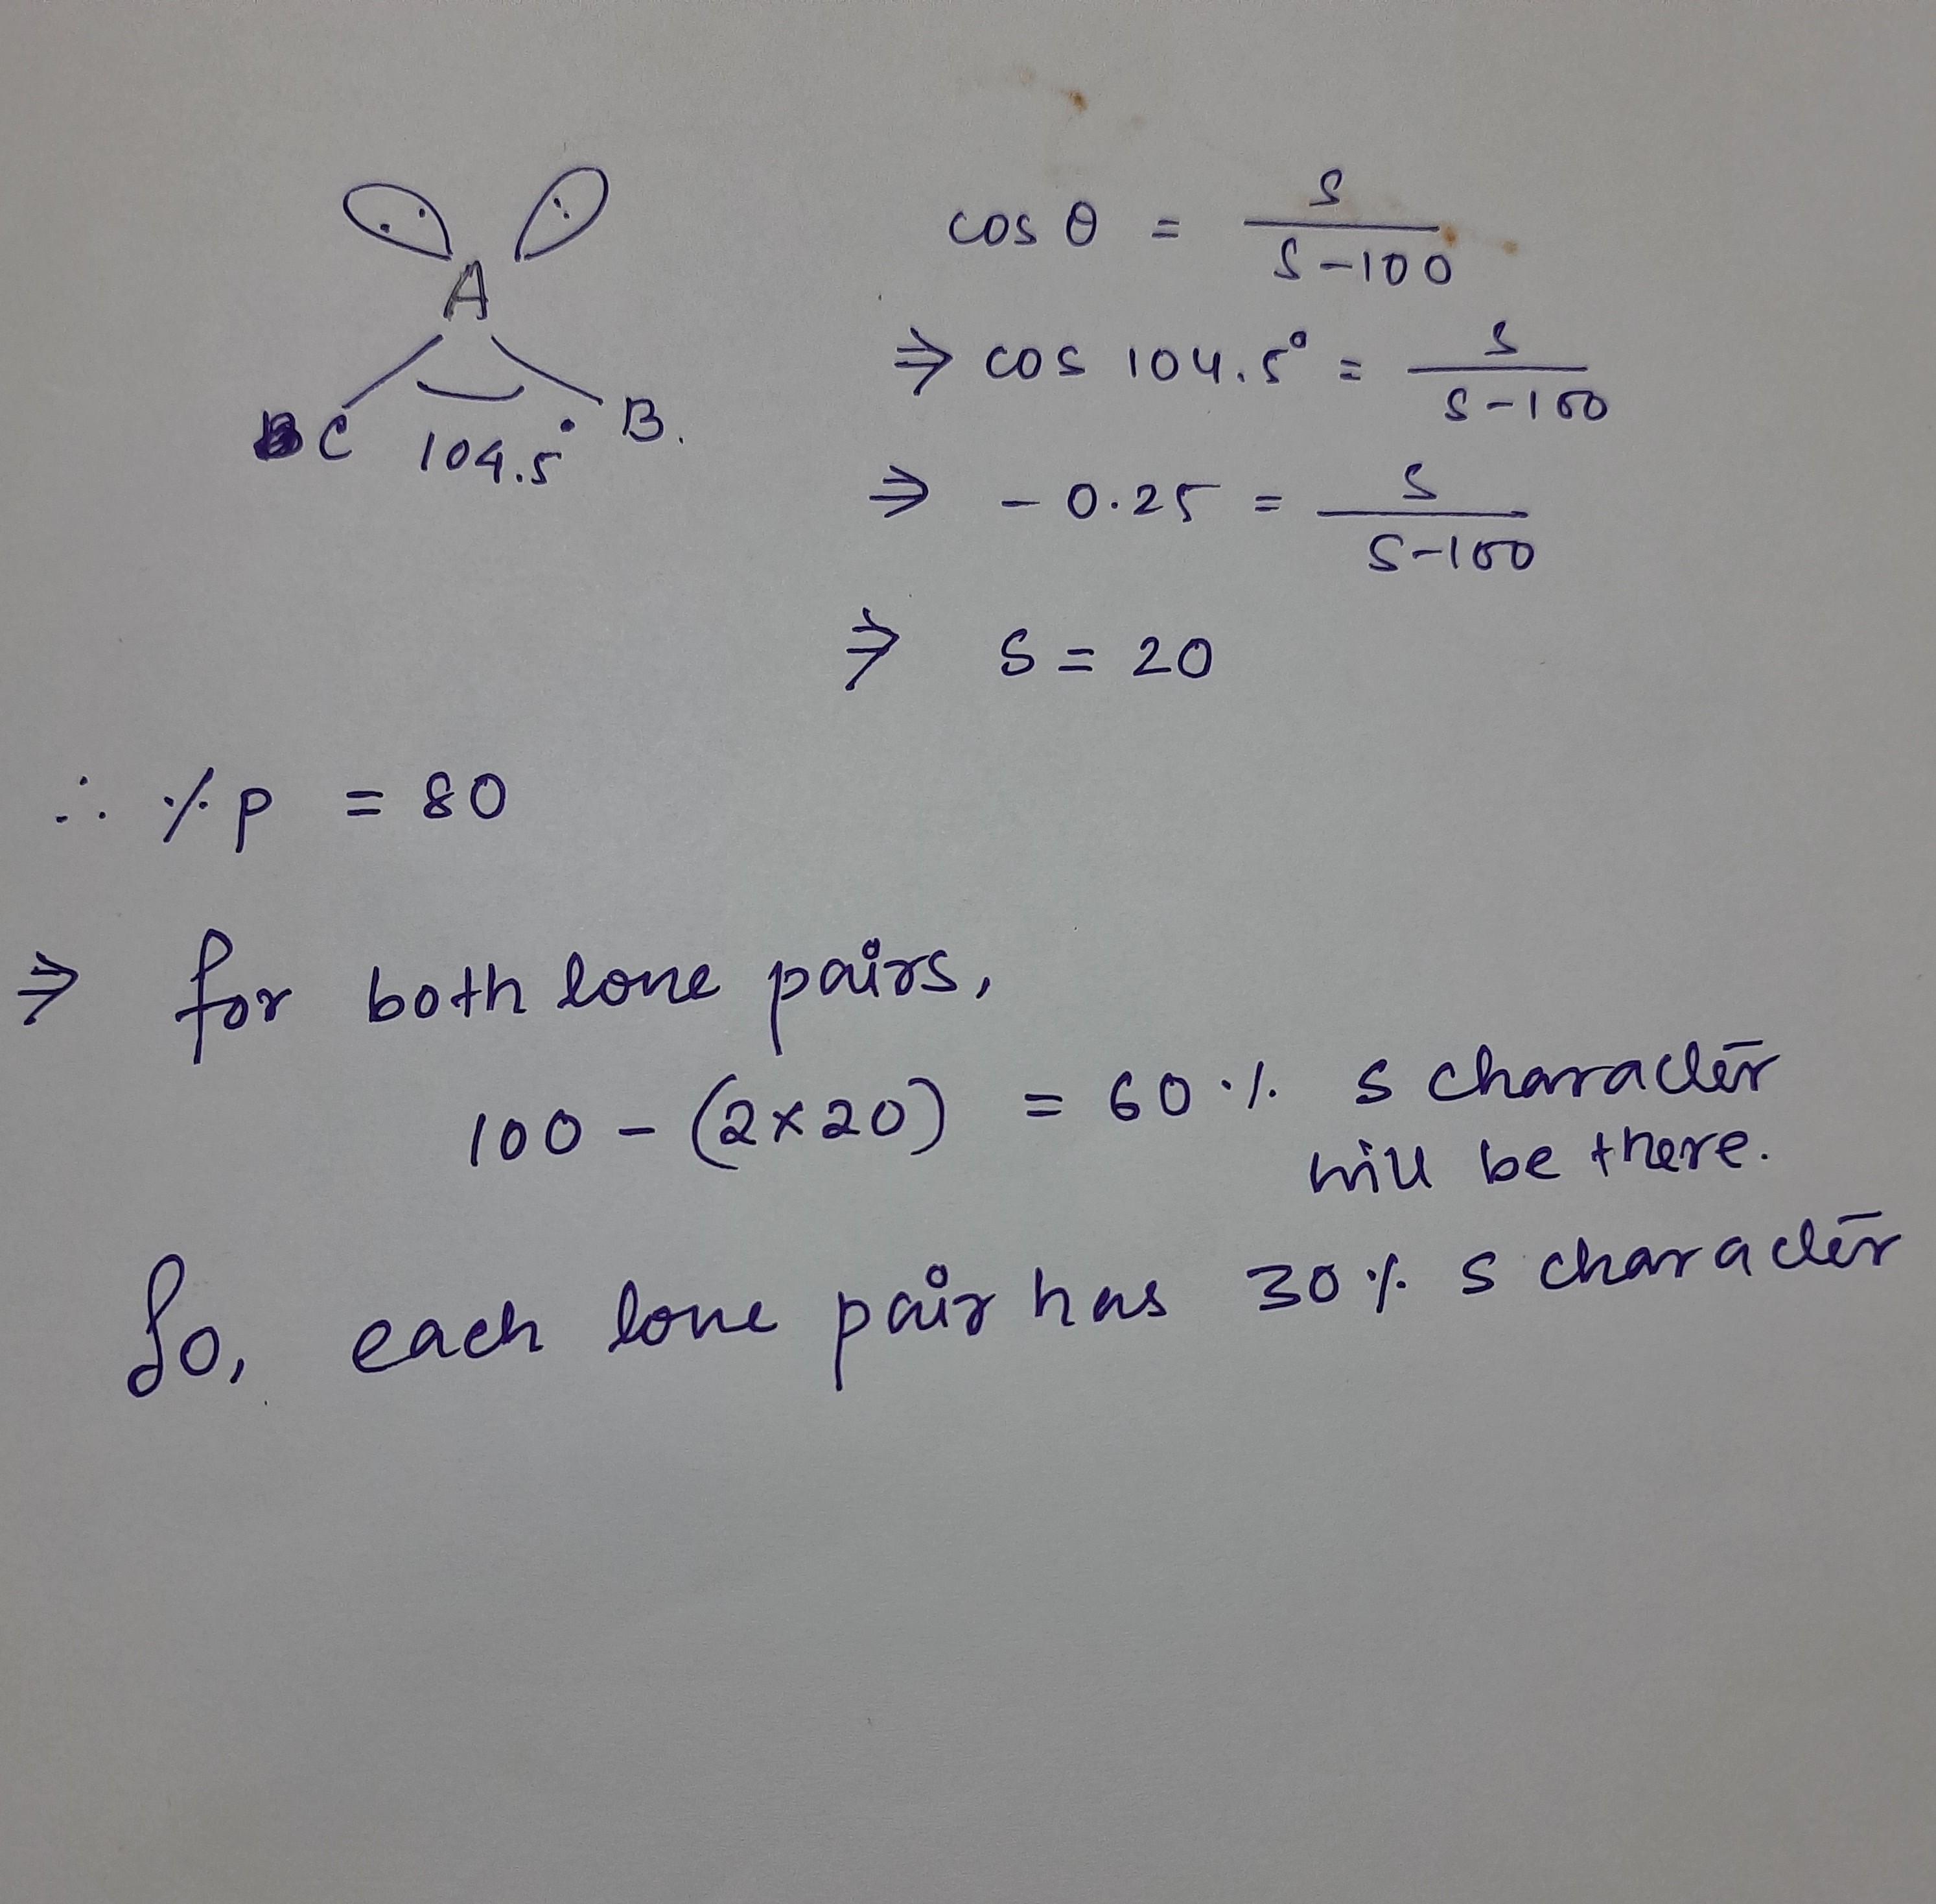 A
C 104.5° B.
cos θ = s / s-100
⇒ cos 104.5° = s / s-100
⇒ -0.25 = s / s-100
⇒ s = 20
∴ % p = 80
⇒ for both lone pairs,
100 - (2×20) = 60 % s character
will be there.
So, each lone pair has 30 % s character